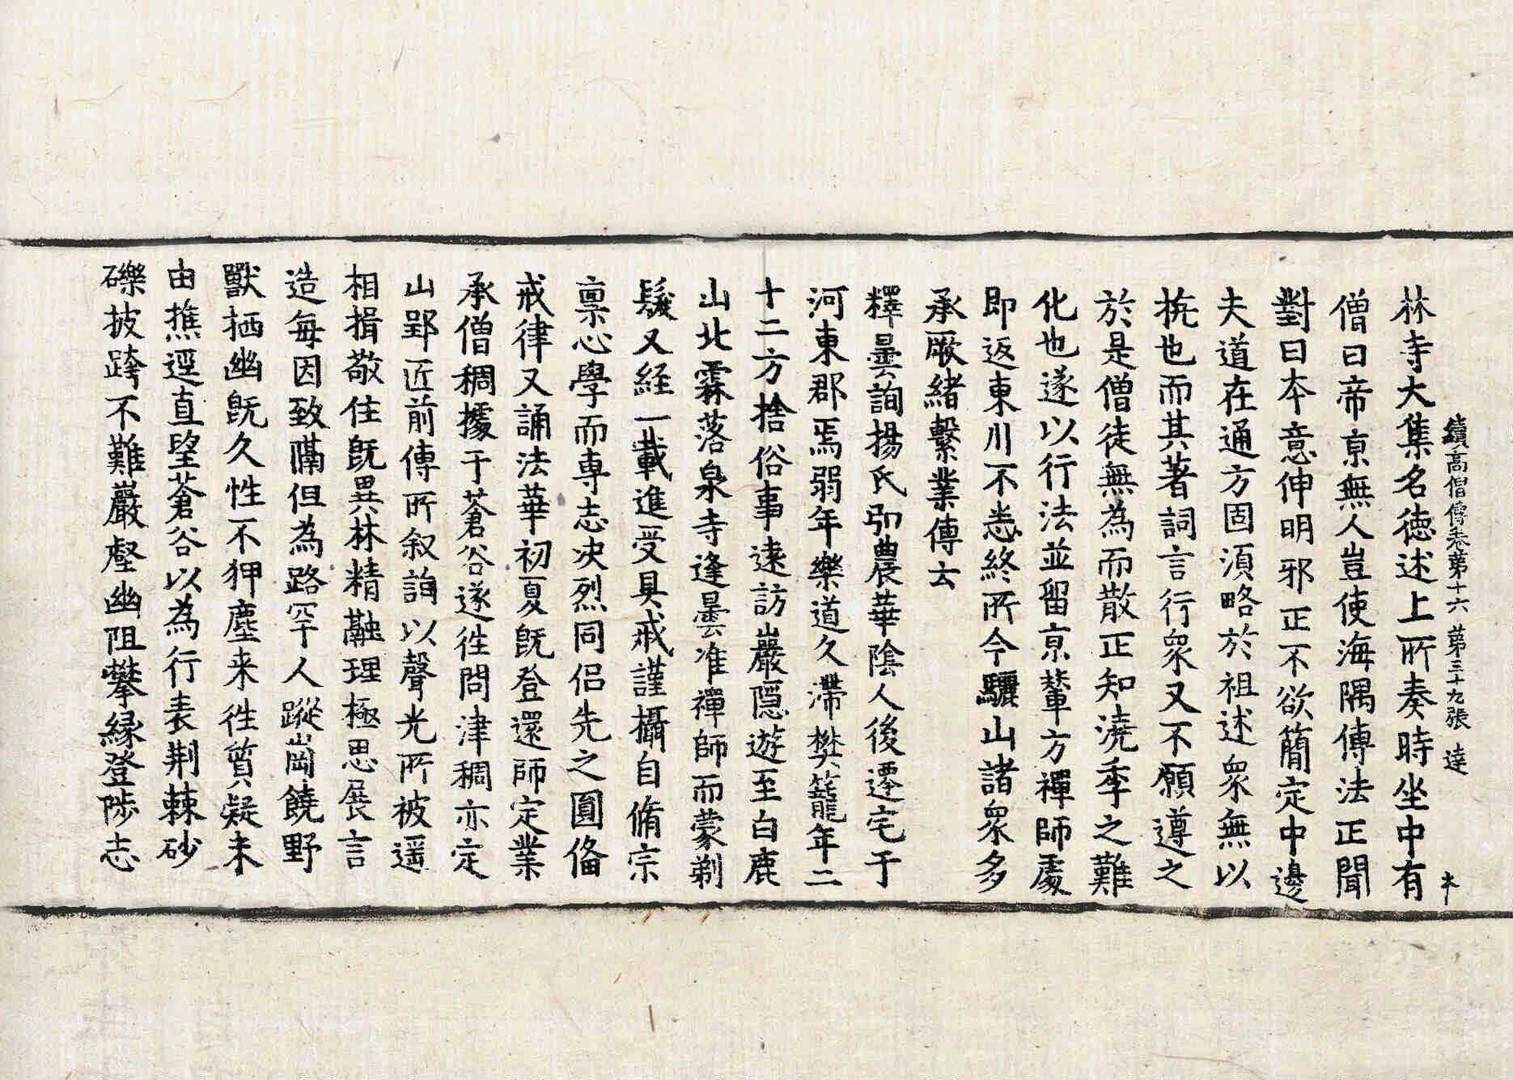 續高僧傳卷第十六　第三十九張　達　本
林寺大集名德述上所奏時坐中有
僧曰帝京無人豈使海隅傳法正聞
對曰本意伸明邪正不欲簡定中邊
夫道在通方固須略於祖述衆無以
抗也而其著詞言行衆又不願遵之
於是僧徒無為而散正知澆季之難
化也遂以行法並留京輦方禪師處
即返東川不悉終所今驪山諸衆多
承厥緒繫業傳云
釋曇詢揚氏弘農華陰人後遷宅于
河東郡焉弱年樂道久滯樊籠年二
十二方捨俗事遠訪巖隱遊至白鹿
山北霖落泉寺逢曇准禪師而蒙剃
髮又經一載進受具戒謹攝自脩宗
稟心學而專志决烈同侶先之圓備
戒律又誦法華初夏旣登還師定業
承僧稠據于蒼谷遂往問津稠亦定
山郢匠前傳所叙詢以聲光所被遥
相揖敬住旣異林精融理極思展言
造每因致隔但為路罕人蹤崗饒野
獸栖幽旣久性不狎塵来往質疑未
由樵逕直望蒼谷以為行表荆棘砂
礫披跨不難巖壑幽阻攀緣登陟志